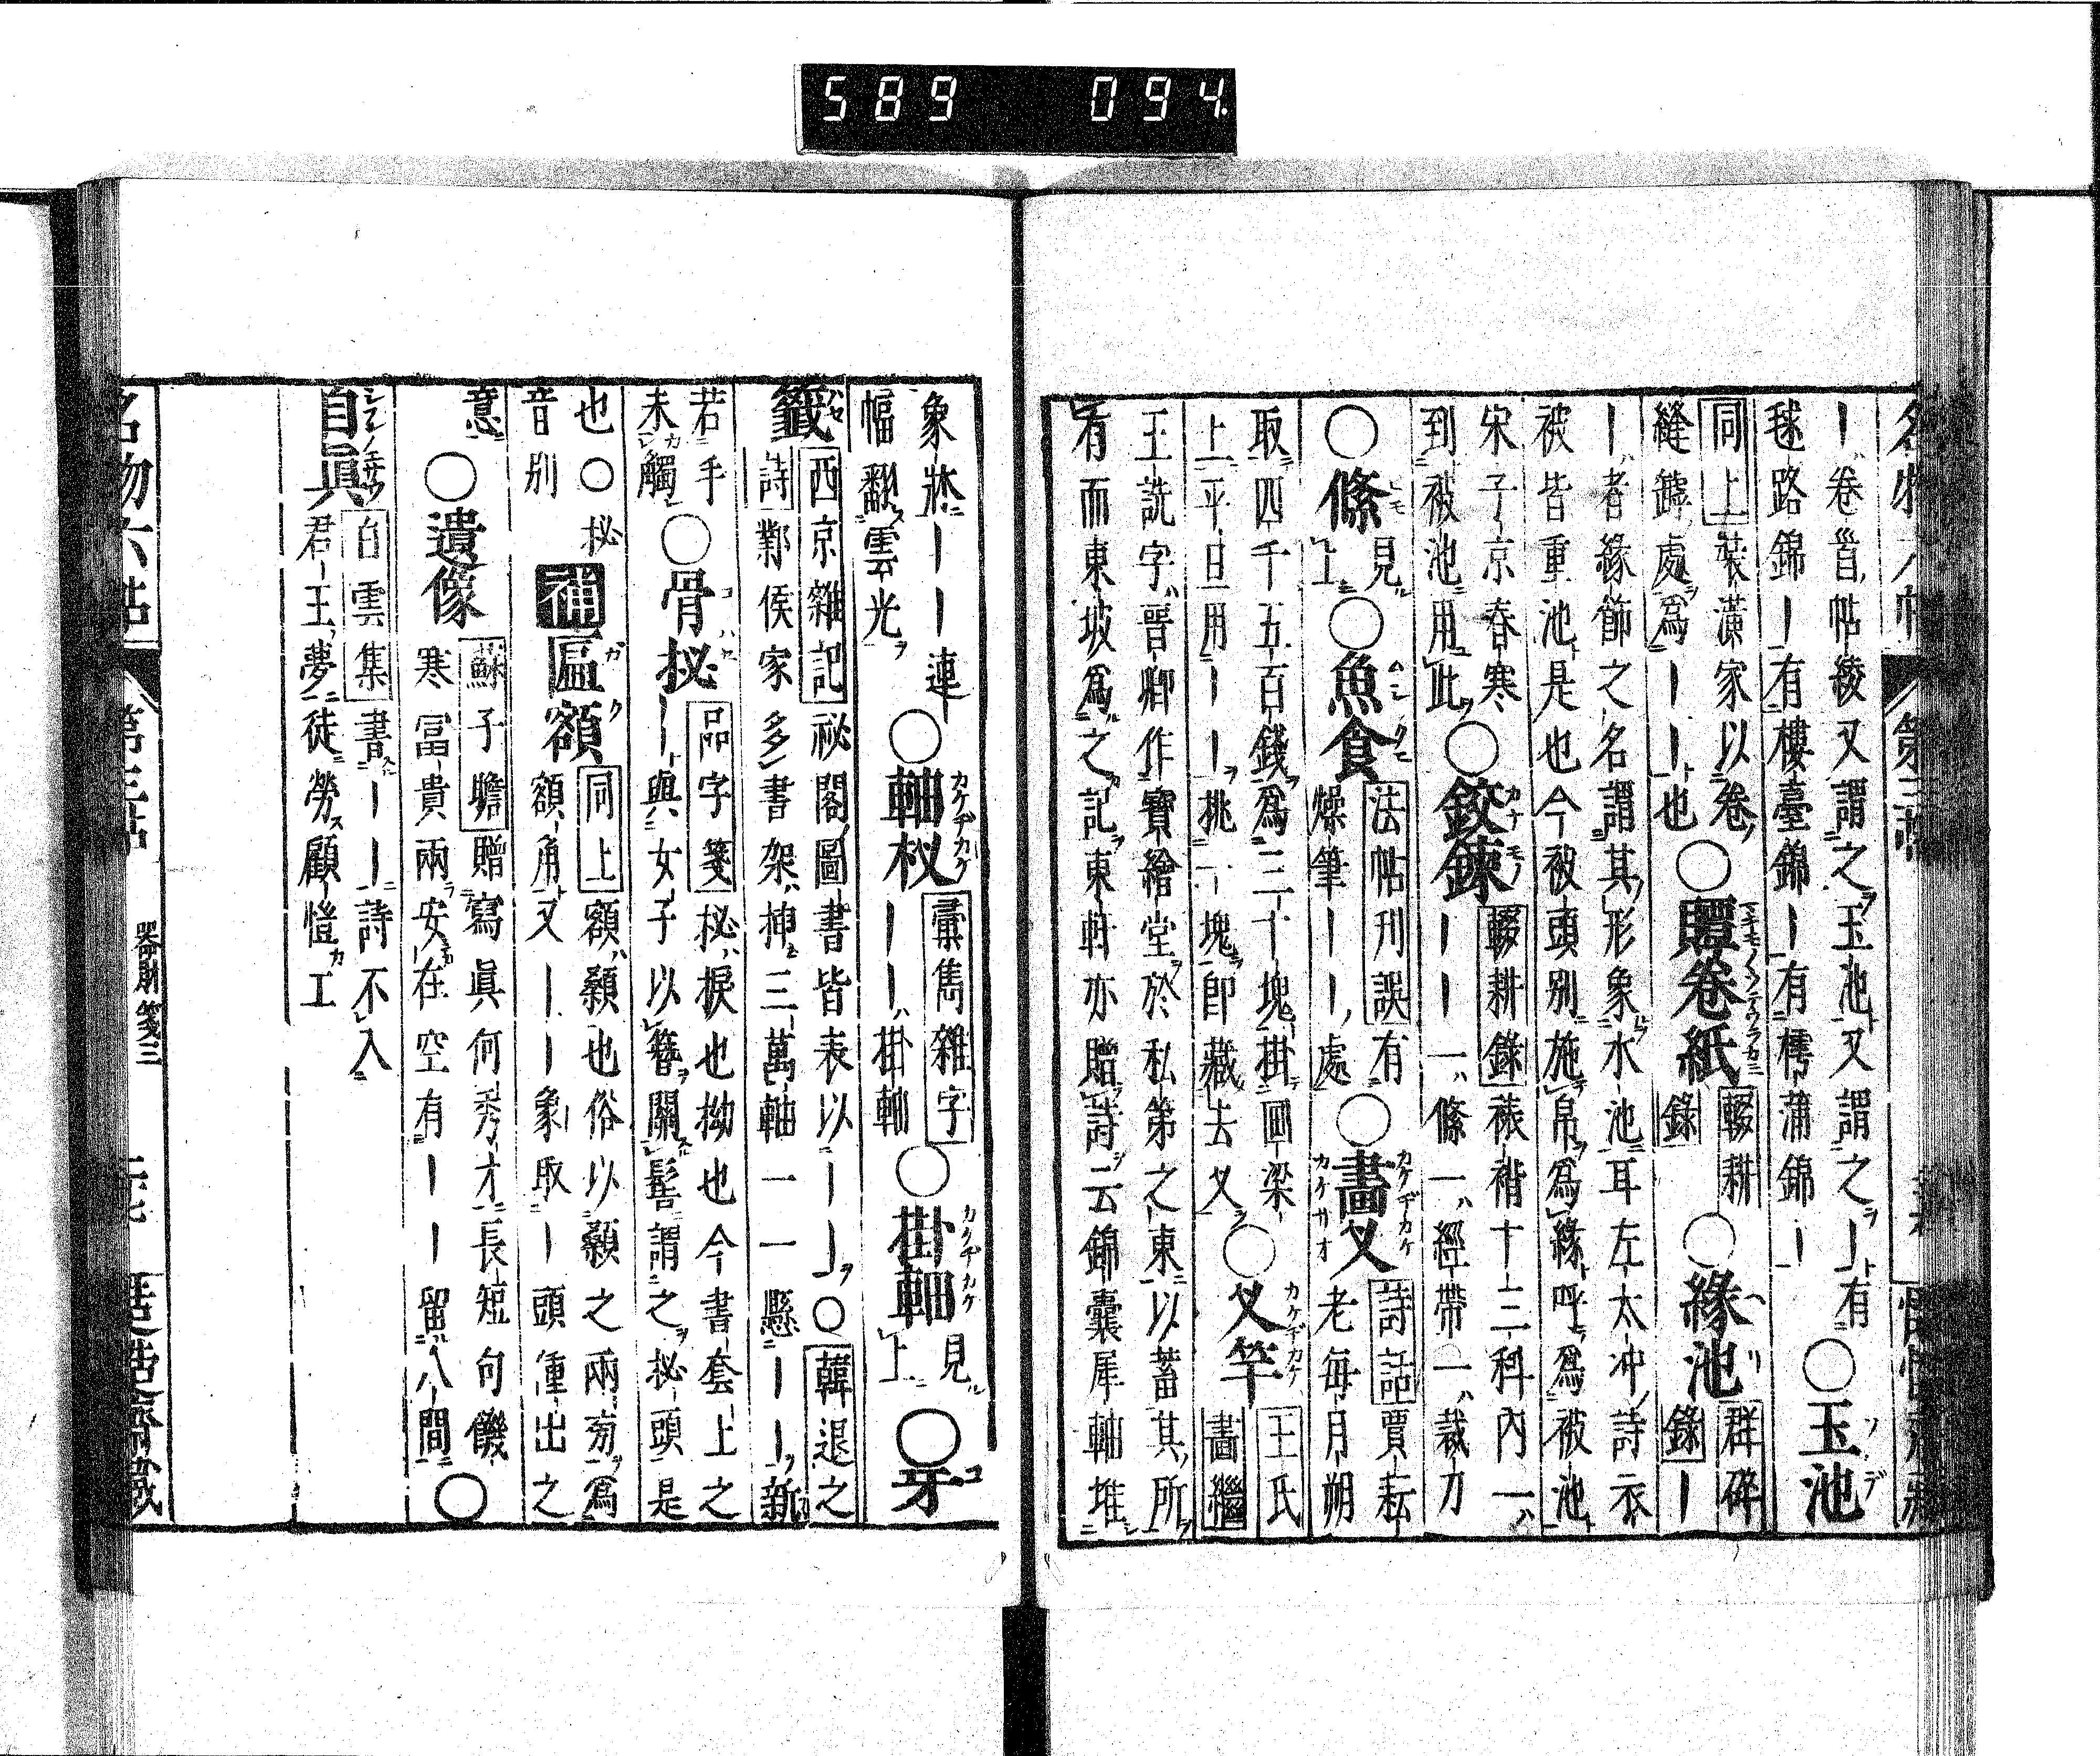 589 094
｜卷首帖綾又謂之玉池又謂之｜有
毬路錦｜有樓臺錦｜有樗蒲錦｜
○玉池
同上裝潢家以卷
縫罅處爲｜｜也
○贉卷紙
輟耕
錄
○緣池
群碎
錄｜
｜者緣飾之名謂其形象水池耳左太冲詩衣
被皆重池是也今被頭別施帛爲緣呼爲被池
宋子京春寒
到被池用此
○鉸鍊
輟耕錄裱褙十三科內一
｜｜一條一經帶一裁刀
○條
見
上
○魚食
法帖刊誤有
燥筆｜｜處
○畵叉
詩話賈耘
老每月朔
取四千五百錢爲三十塊掛囬梁
上平旦用｜｜挑一塊卽藏去叉
○叉竿
王氏
畵繼
王詵字晉卿作寶繪堂於私第之東以蓄其所
有而東坡爲之記東軒亦贈詩云錦囊犀軸堆
象牀｜｜連
幅翻雲光
○軸杈
彙雋雜字
｜｜掛軸
○掛軸
見
上
○牙
籤
西京雜記祕閣圖書皆表以｜｜○韓退之
詩鄴侯家多書架挿三萬軸一一懸｜｜新
若手
未觸
○骨柲
品字箋柲捩也拗也今書套上之
｜與女子以簪關髻謂之柲頭是
也○柲
音別
補
匾額
同上額顙也俗以顙之兩旁爲
額角又｜｜象取｜頭僅出之
意
○遺像
蘇子瞻贈寫眞何秀才長短句儀
寒冨貴兩安在空有｜｜留人間
○
自眞
白雲集書｜｜詩不入
君王夢徒勞顧愷工
名物六帖
第三帖
器財箋三